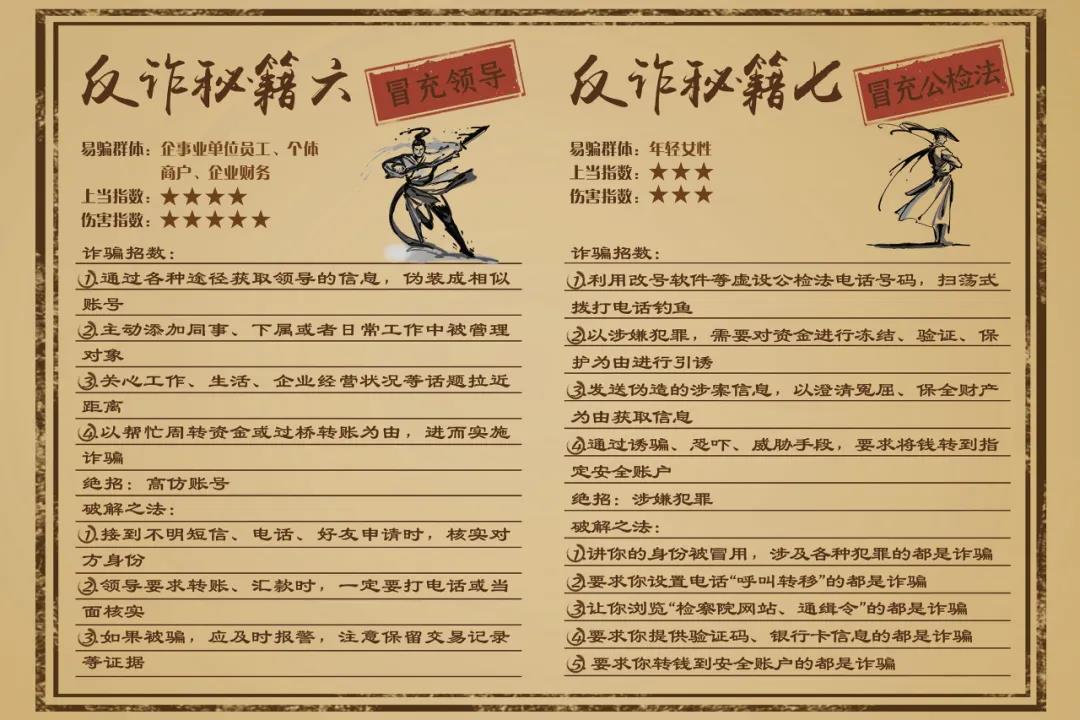 反诈秘籍六
冒充领导
易骗群体：企事业单位员工、个体
商户、企业财务
上当指数：★★★★
伤害指数：★★★★★
诈骗招数：
①通过各种途径获取领导的信息，伪装成相似
账号
②主动添加同事、下属或者日常工作中被管理
对象
③关心工作、生活、企业经营状况等话题拉近
距离
④以帮忙周转资金或过桥转账为由，进而实施
诈骗
绝招：高仿账号
破解之法：
①接到不明短信、电话、好友申请时，核实对
方身份
②领导要求转账、汇款时，一定要打电话或当
面核实
③如果被骗，应及时报警，注意保留交易记录
等证据
反诈秘籍七
冒充公检法
易骗群体：年轻女性
上当指数：★★★
伤害指数：★★★
诈骗招数：
①利用改号软件等虚设公检法电话号码，扫荡式
拨打电话钓鱼
②以涉嫌犯罪，需要对资金进行冻结、验证、保
护为由进行引诱
③发送伪造的涉案信息，以澄清冤屈、保全财产
为由获取信息
④通过诱骗、恐吓、威胁手段，要求将钱转到指
定安全账户
绝招：涉嫌犯罪
破解之法：
①讲你的身份被冒用，涉及各种犯罪的都是诈骗
②要求你设置电话“呼叫转移”的都是诈骗
③让你浏览“检察院网站、通缉令”的都是诈骗
④要求你提供验证码、银行卡信息的都是诈骗
⑤要求你转钱到安全账户的都是诈骗